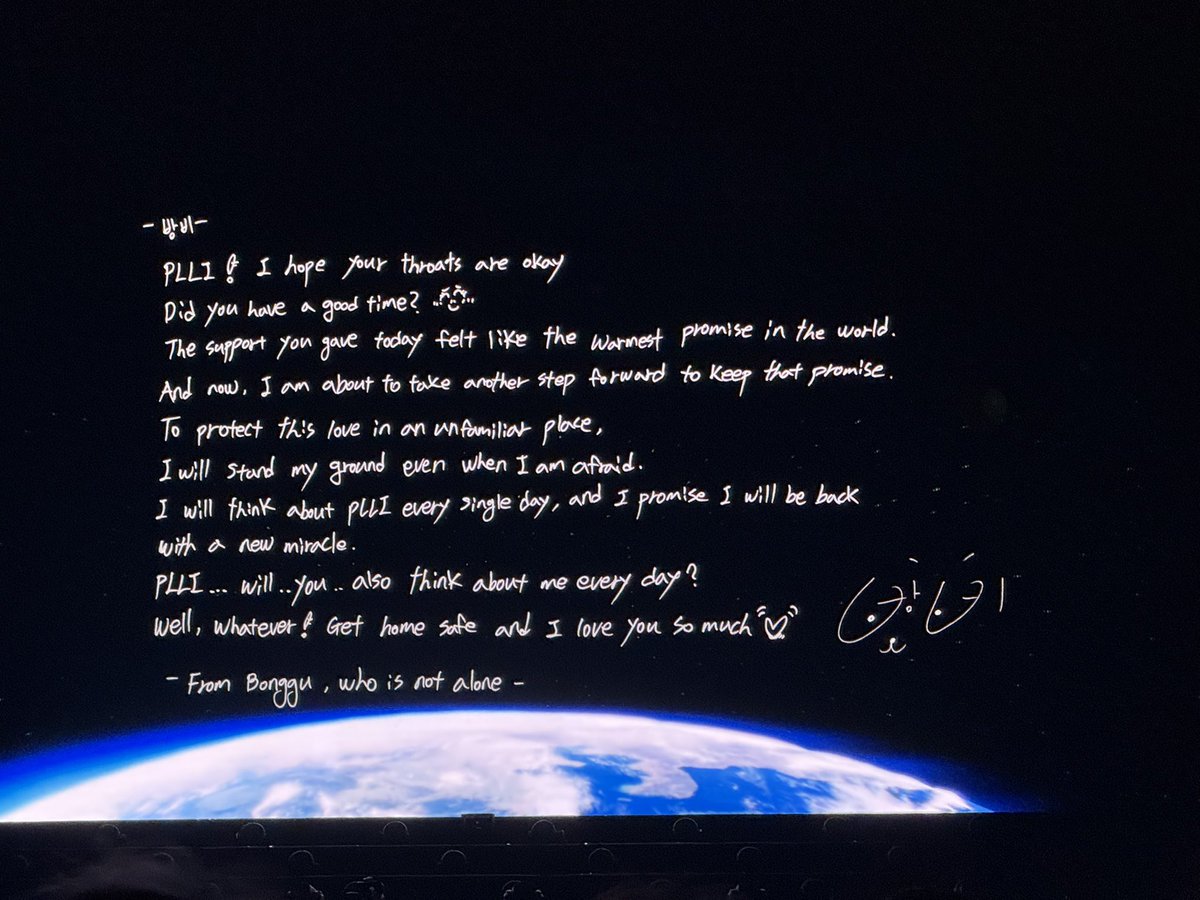 -밤비-
PLLI! I hope your throats are okay
Did you have a good time?
The support you gave today felt like the warmest promise in the world.
And now, I am about to take another step forward to keep that promise.
To protect this love in an unfamiliar place,
I will stand my ground even when I am afraid.
I will think about PLLI every single day, and I promise I will be back
with a new miracle.
PLLI... will..you.. also think about me every day?
Well, whatever! Get home safe and I love you so much
- From Bonggu, who is not alone -